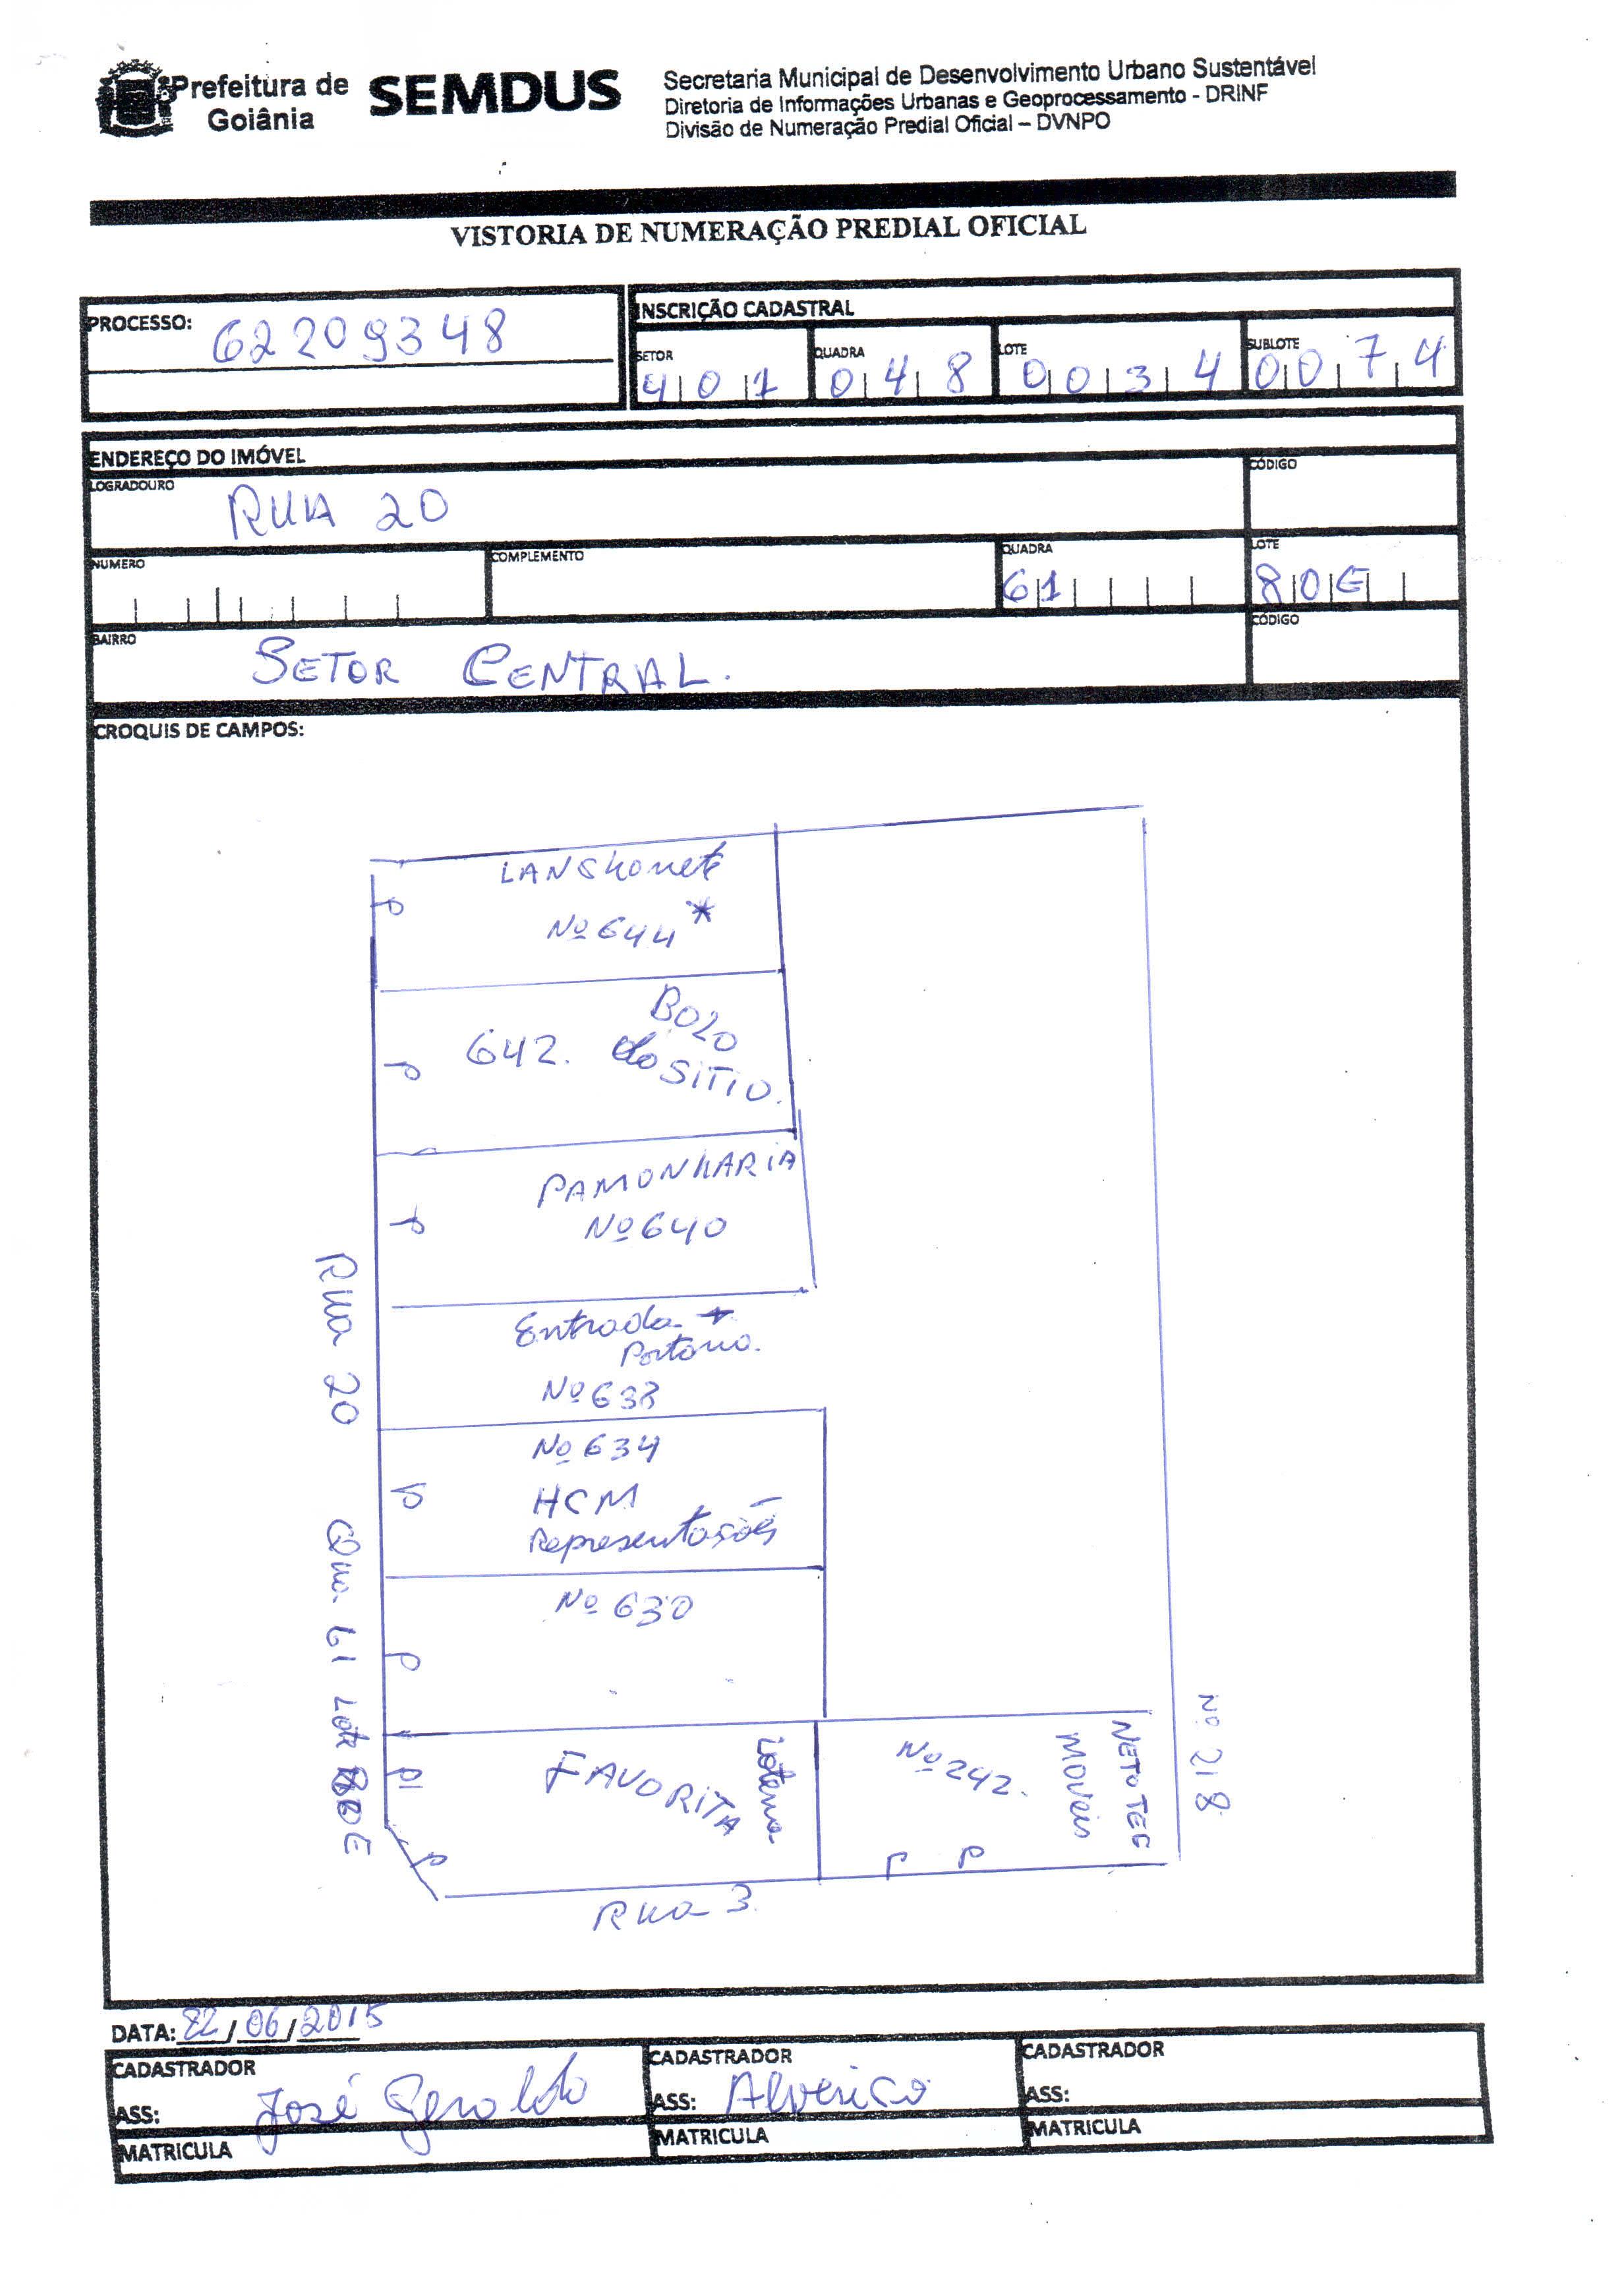 Prefeitura de Goiânia
SEMDUS
Secretaria Municipal de Desenvolvimento Urbano Sustentável
Diretoria de Informações Urbanas e Geoprocessamento - DRINF
Divisão de Numeração Predial Oficial – DVNPO
VISTORIA DE NUMERAÇÃO PREDIAL OFICIAL
PROCESSO: 62209348
INSCRIÇÃO CADASTRAL
SETOR 401 QUADRA 048 LOTE 0034 SUBLOTE 0074
ENDEREÇO DO IMÓVEL
LOGRADOURO RUA 20 CÓDIGO
NUMERO COMPLEMENTO QUADRA 61 LOTE 80E
BAIRRO SETOR CENTRAL. CÓDIGO
CROQUIS DE CAMPOS:
LANSHonete
Nº 644 *
642. BOLO
do SITIO.
PAMONHARIA
Nº 640
Entrada
Portaria.
Nº 638
Nº 634
HCM
Representações
Nº 630
Rua 20 Qua. 61 Lote 80E
FAVORITA
Loteria
Nº 242.
MOVEIS
NETO TEC
Nº 218
Rua 3
DATA: 22/06/2015
CADASTRADOR CADASTRADOR CADASTRADOR
ASS: José Geraldo ASS: Alverico ASS:
MATRICULA MATRICULA MATRICULA